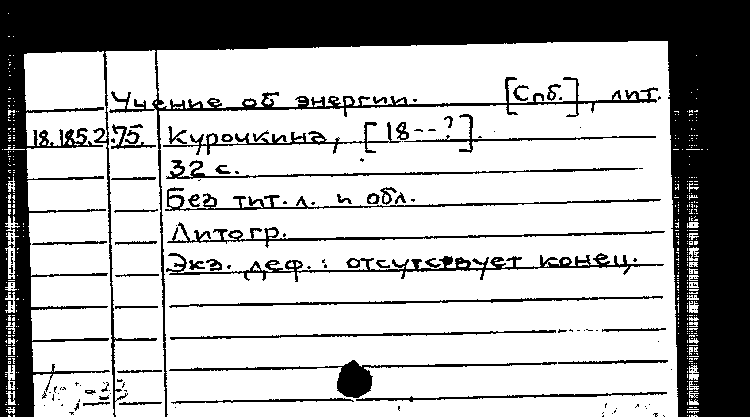 Учение об энергии. [Спб.], лит.
18.185.2.75. Курочкина, [18--?].
32 с.
Без тит. л. и обл.
Литогр.
Экз. деф.: отсутствует конец.